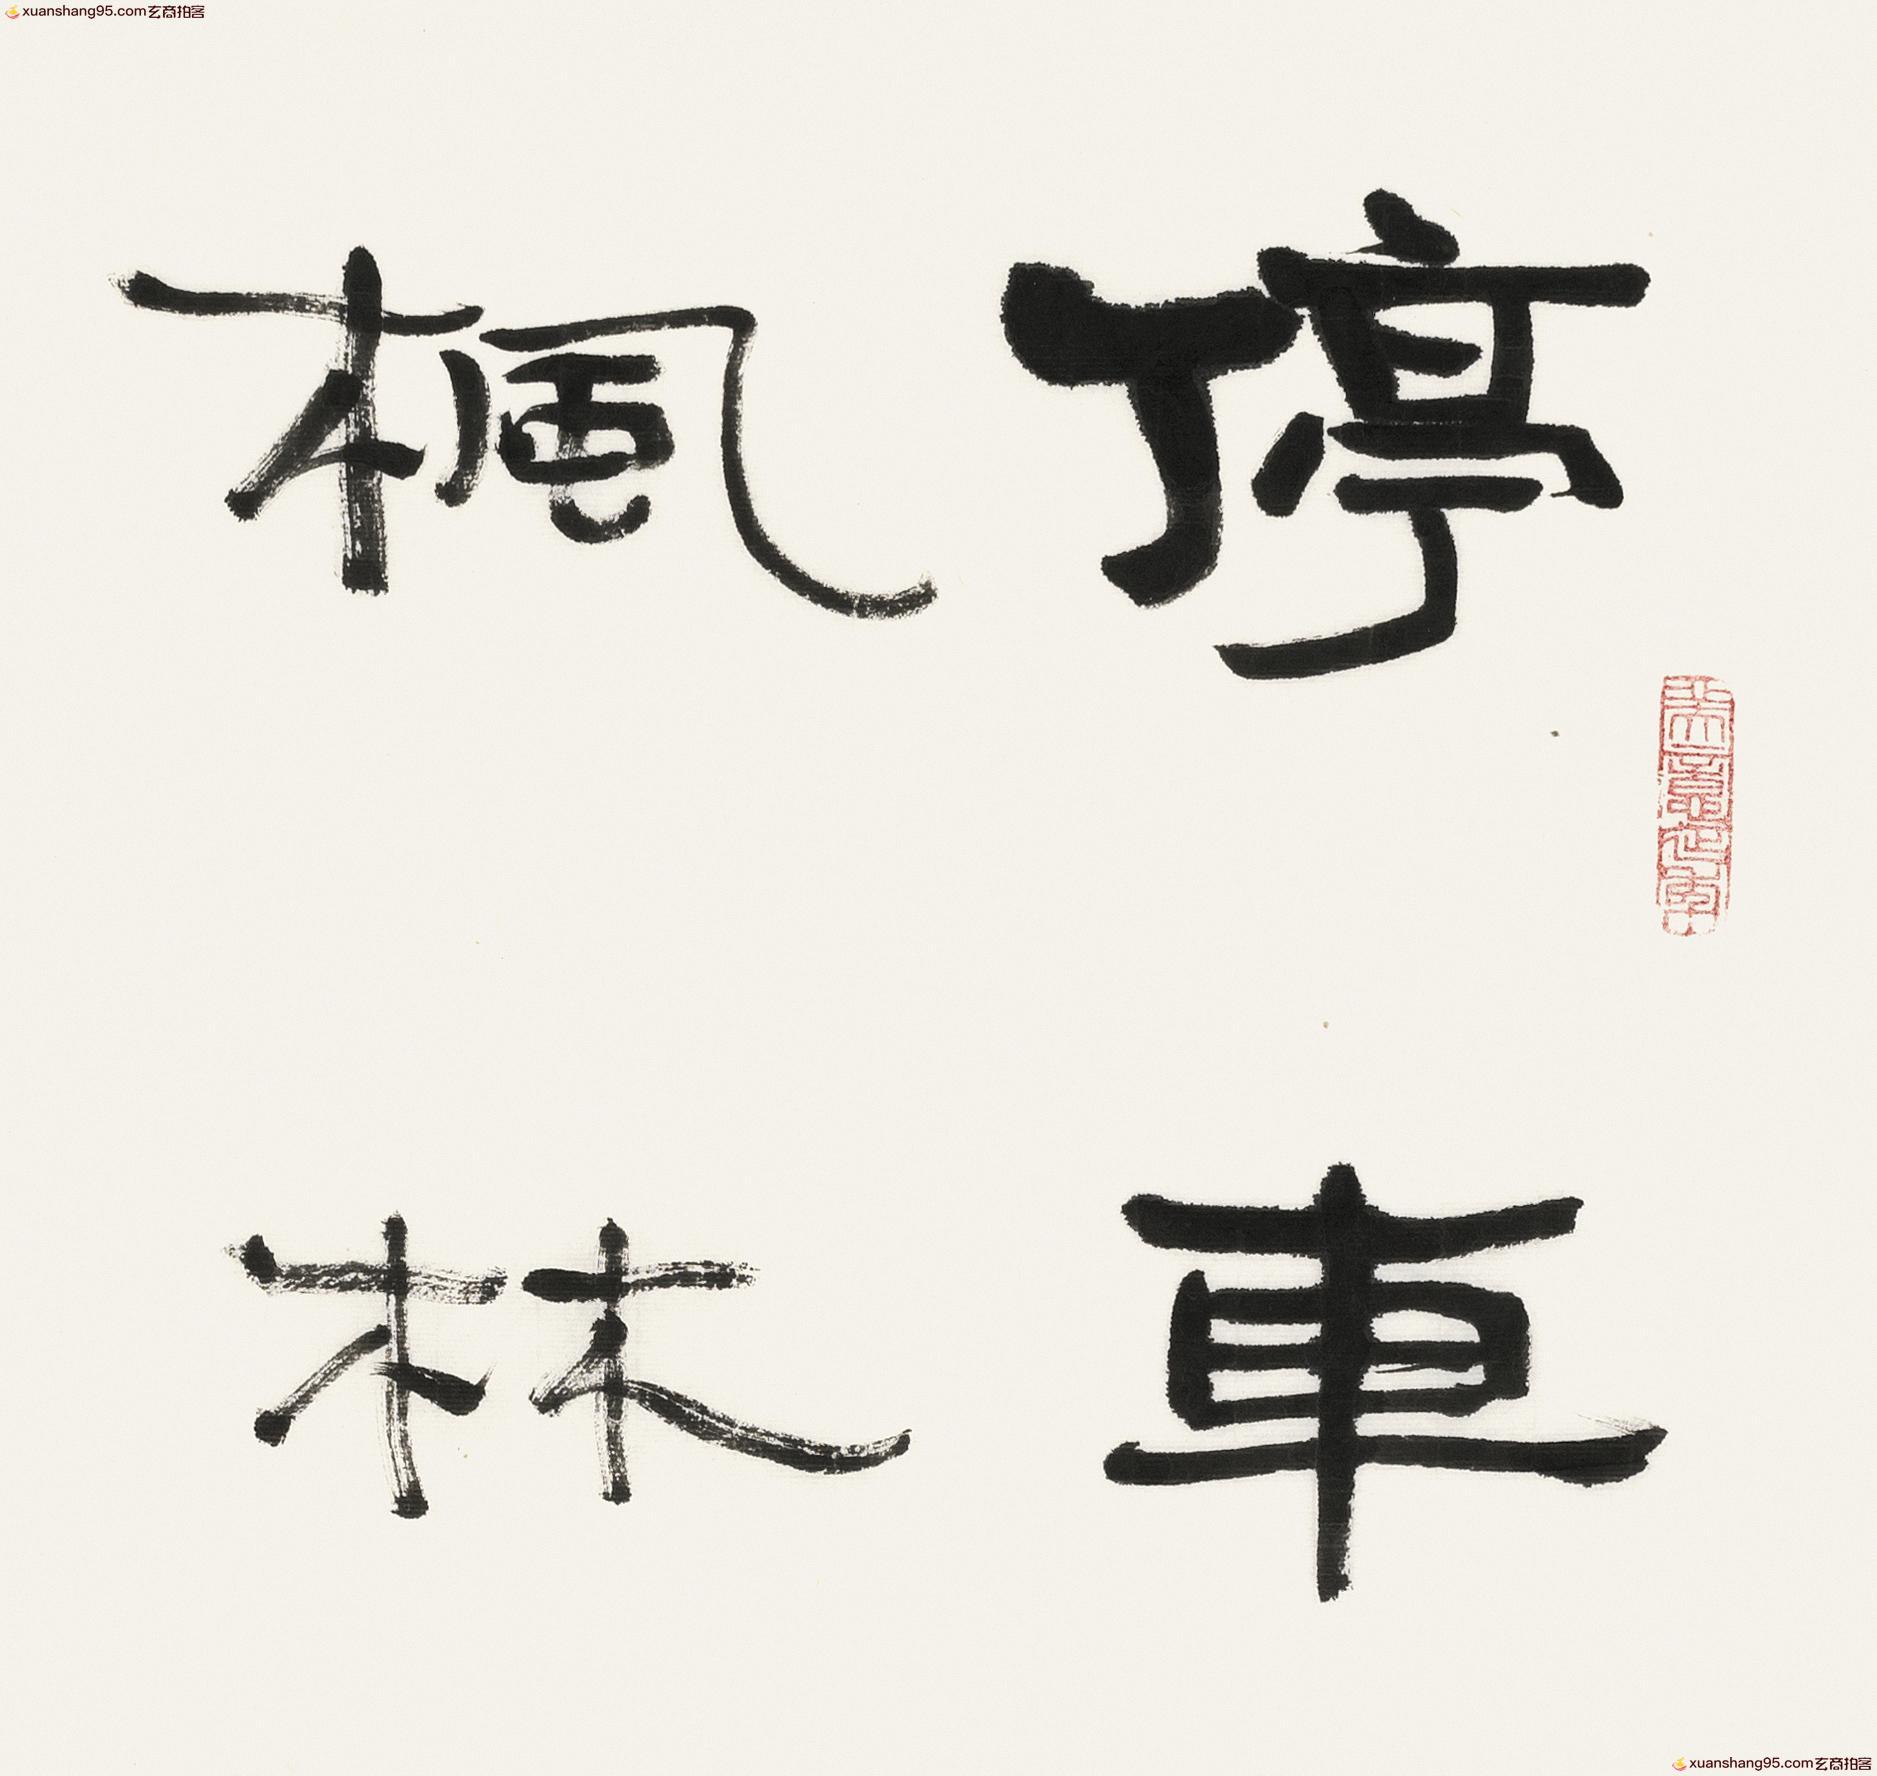 xuanshang95.com玄商拍客
停車
楓林
xuanshang95.com玄商拍客